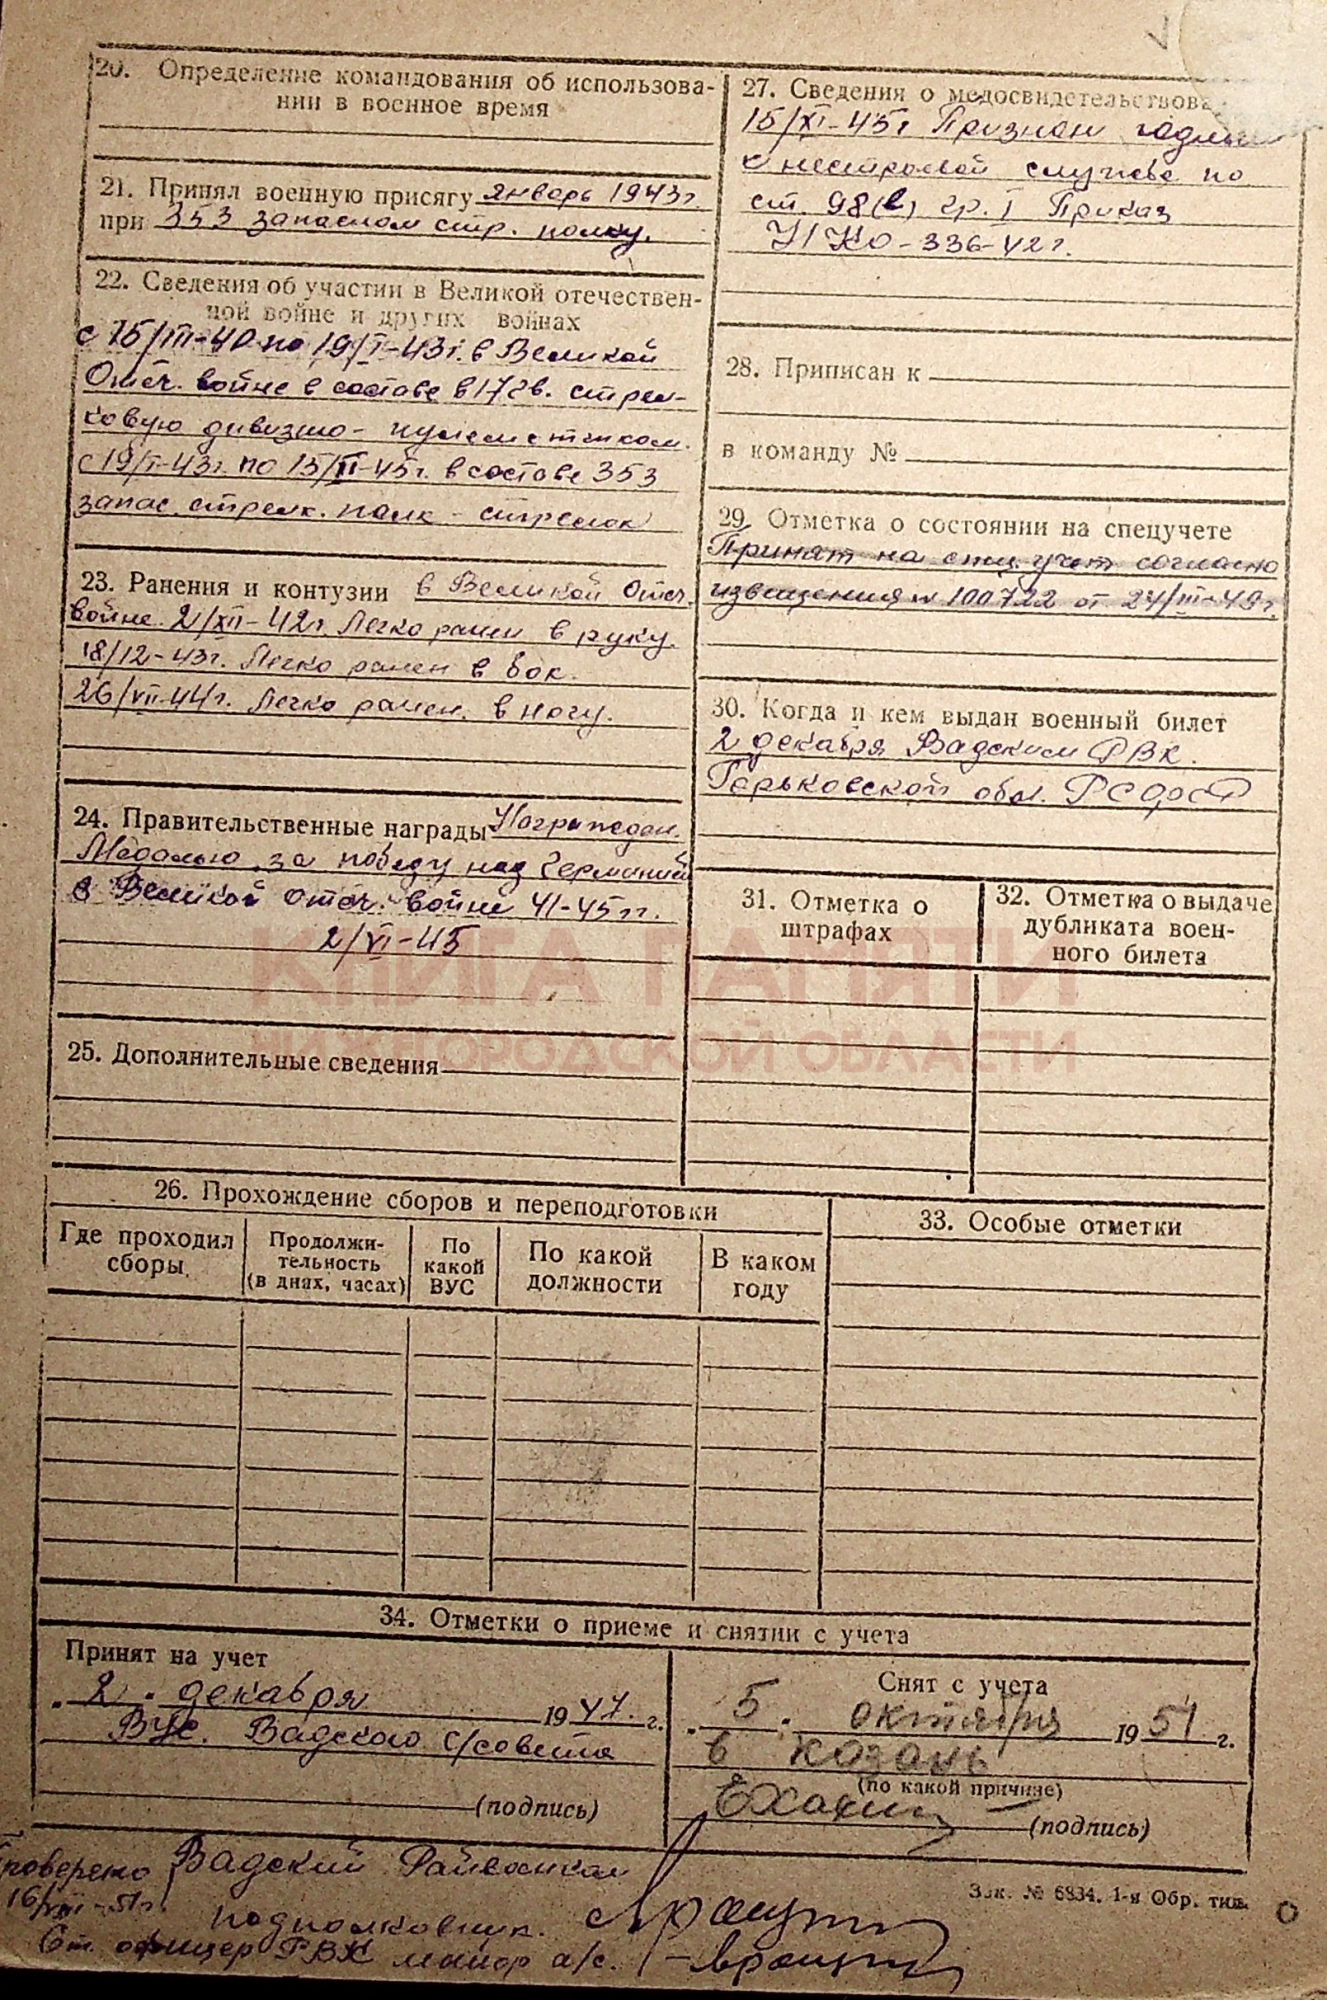 20. Определение командования об использова-
нии в военное время
21. Принял военную присягу январь 1943г.
при 353 запасном стр. полку.
22. Сведения об участии в Великой отечествен-
ной войне и других войнах
с 15/III-40 по 19/I-43г. в Великой
Отеч. войне в составе в 17 гв. стрел-
ковую дивизию - пулеметчиком.
с 19/I-43г. по 15/XI-45г. в составе 353
запас. стрелк. полк - стрелок
23. Ранения и контузии в Великой Отеч.
войне. 2/XII-42г. Легко ранен в руку.
18/12-43г. Легко ранен в бок.
26/VII-44г. Легко ранен. в ногу.
24. Правительственные награды Награжден.
Медалью за победу над Германией
в Великой Отеч. войне 41-45гг.
2/VI-45
25. Дополнительные сведения
26. Прохождение сборов и переподготовки
Где проходил сборы
Продолжи-
тельность
(в днях, часах)
По
какой
ВУС
По какой
должности
В каком
году
27. Сведения о медосвидетельствова
15/XI-45г Признан годным
к нестроевой службе по
ст. 98(в) гр. I Приказ
НКО-336-42г.
28. Приписан к
в команду №
29. Отметка о состоянии на спецучете
Принят на спец. учет согласно
извещения № 100722 от 24/III-49г.
30. Когда и кем выдан военный билет
2 декабря Вадским РВК.
Горьковской обл. РСФСР
31. Отметка о
штрафах
32. Отметка о выдаче
дубликата воен-
ного билета
33. Особые отметки
34. Отметки о приеме и снятии с учета
Принят на учет
"2" декабря 1947 г.
ВУС. Вадского с/совета
(подпись)
Снят с учета
"5" октября 1951 г.
в Казань
(по какой причине)
(подпись)
Проверено Вадский Райвоенком
16/VIII-51г.
подполковник.
Ст. офицер РВК майор а/с.
Зак. № 6834. 1-я Обр. тип.
КНИГА ПАМЯТИ
НИЖЕГОРОДСКОЙ ОБЛАСТИ